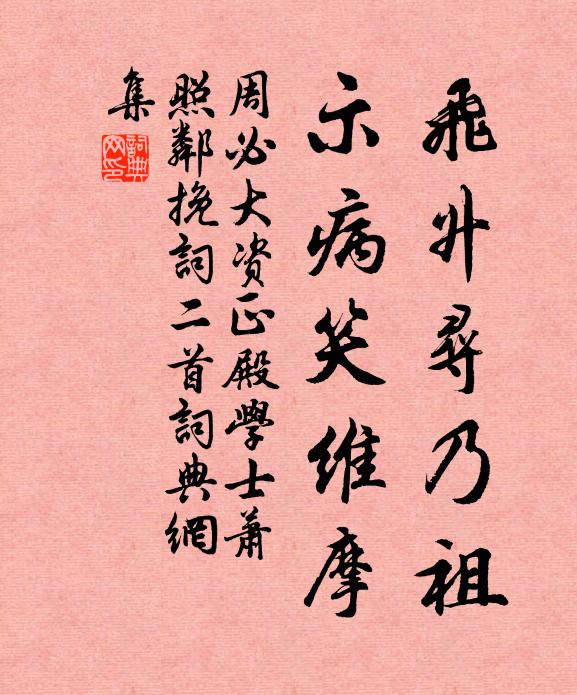 飛升尋乃祖
示病笑維摩
周必大資正殿學士蕭
照鄰挽詞二首詞典網
集
詞典
网印